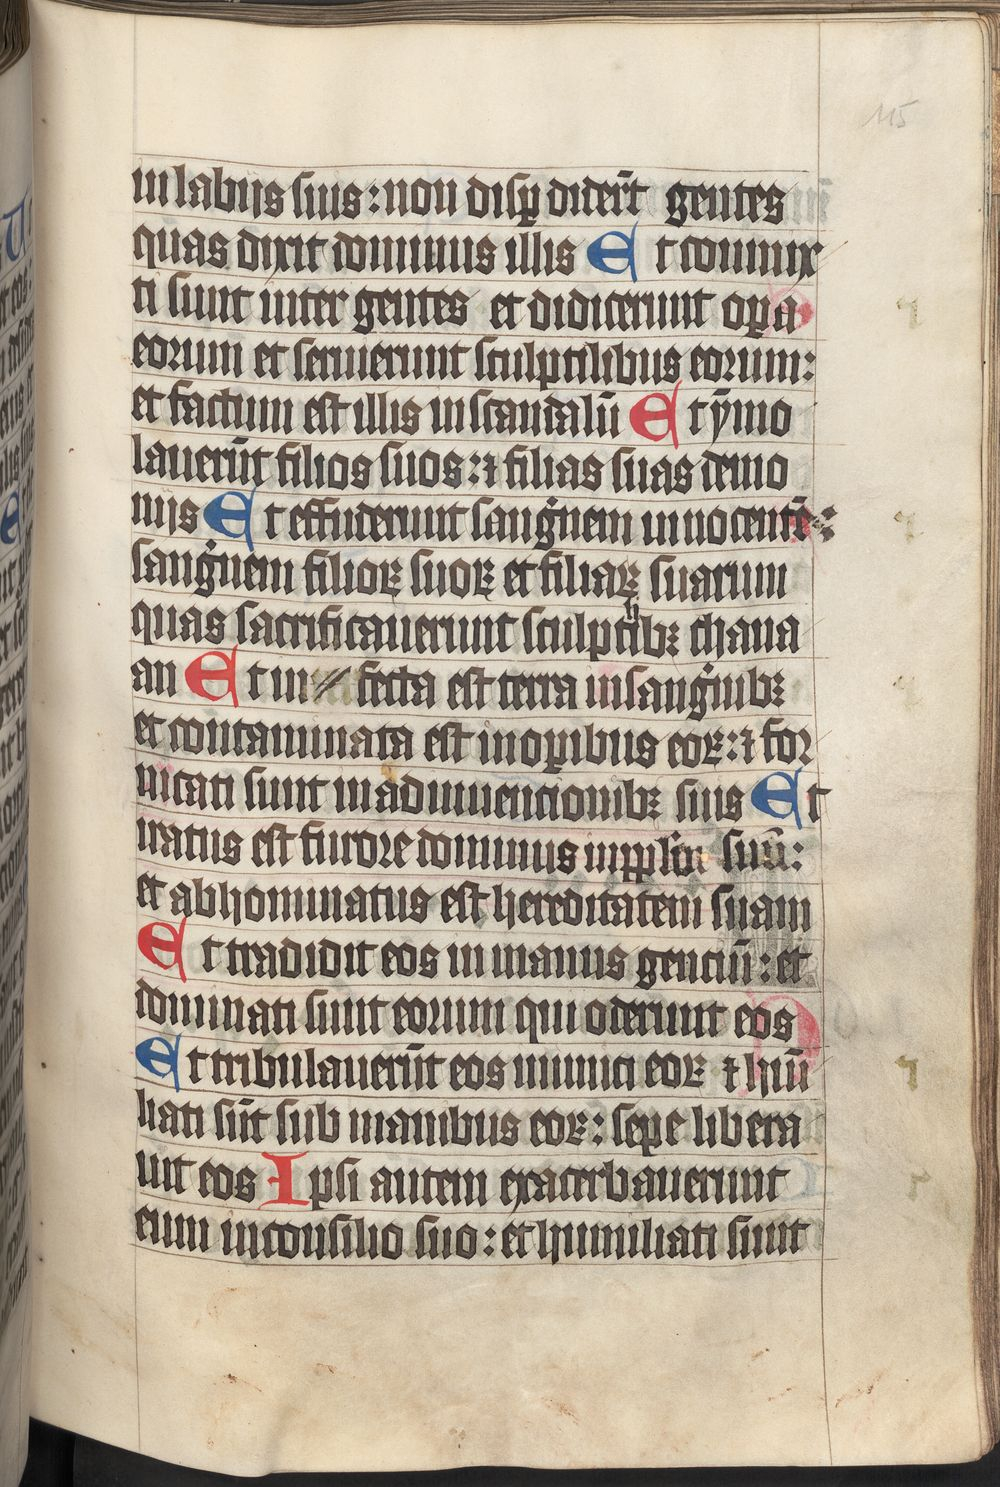 115
in labijs suis : non disꝑdiderūt gentes
quas dixit dominus illis Et commix
ti sunt inter gentes et didicerunt oꝑa
eorum et seruierunt sculptilibus eorum :
et factum est illis in scandalū Et ymo
lauerūt filios suos : ⁊ filias suas demo
nijs Et effuderunt sangⁱnem innocentē :
sangⁱnem filioꝝ suoꝝ et filiaꝝ suarum
quas sacrificauerunt sculptibꝫ chana
an Et in // fecta est terra in sangⁱnibꝫ
et contaminata est in oꝑibus eoꝝ : ⁊ for
nicati sunt in adinuencionibꝫ suis Et
iratus est furore dominus in pplm̄ suū :
et abhominatus est hereditatem suam
Et tradidit eos in manus genciū : et
dominati sunt eorum qui oderunt eos
Et tribulauerūt eos inimici eoꝝ ⁊ hūi
liati sūt sub manibus eoꝝ : sepe libera
uit eos Ipsi autem exacerbauerunt
eum in consilio suo : et humiliati sunt